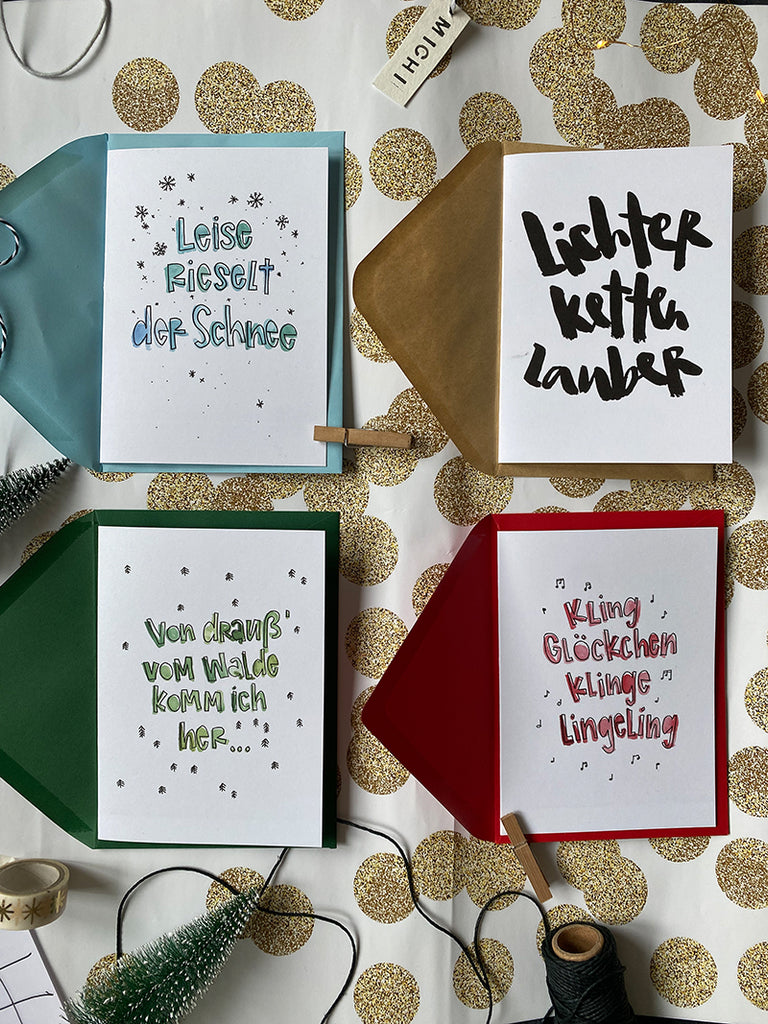 MICHI
Leise
rieselt
der Schnee
Lichter
ketten
zauber
Von drauß'
vom Walde
komm ich
her...
Kling
Glöckchen
klinge
lingeling